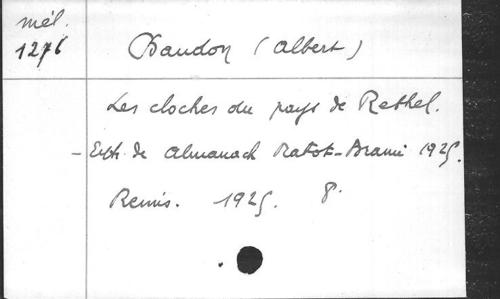 mél.
1276
Baudon (Albert)
Les cloches du pays de Rethel.
- Extr. de Almanach Matot-Braine 1925.
Reims. 1925. 8°.